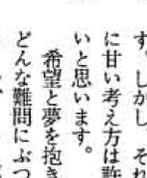 す。しかし　それ
に甘い考え方は許
いと思います。
希望と夢を抱き
どんな難問にぶつ